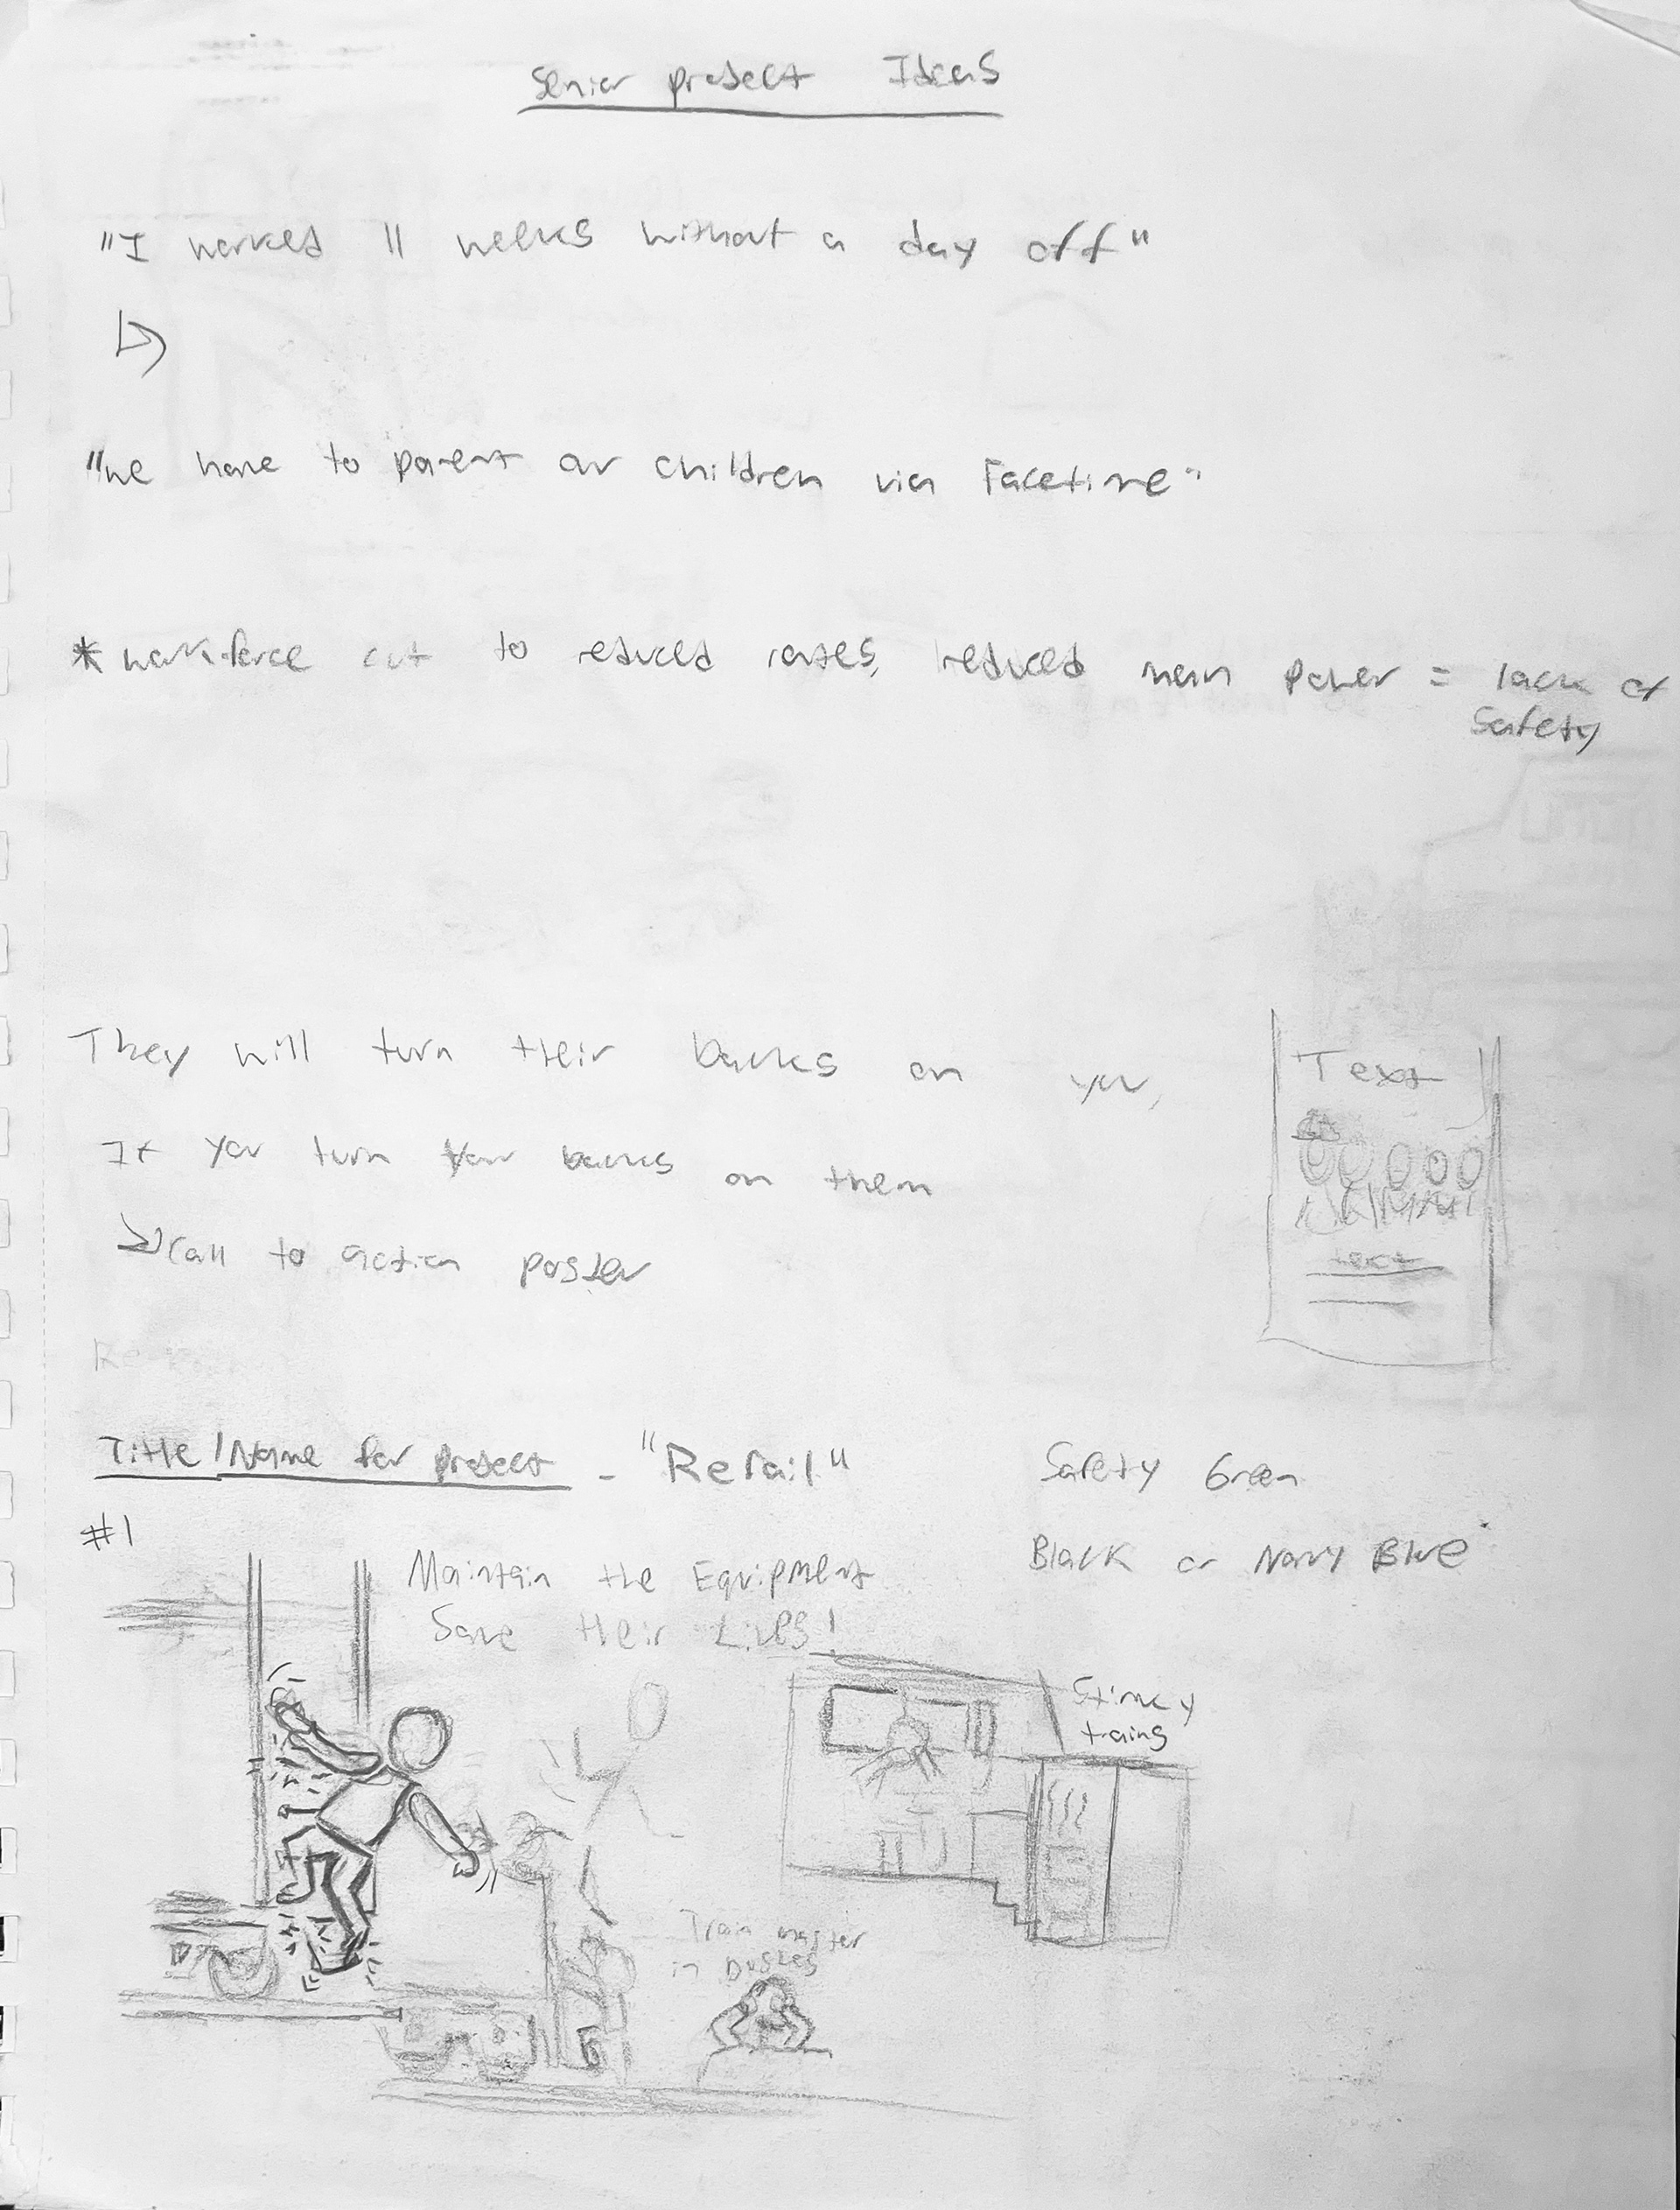 Senior project Ideas
"I worked 11 weeks without a day off"
"we have to parent our children via Facetime"
* workforce cut to reduced rates, reduced man power = lack of
safety
They will turn their backs on you,
If you turn your backs on them
Call to action poster
Text
text
Title/Name for project - "Rerail"
Safety Green
Black or Navy Blue
#1
Maintain the Equipment
Save their Lives!
Stinky
trains
Train master
in bushes